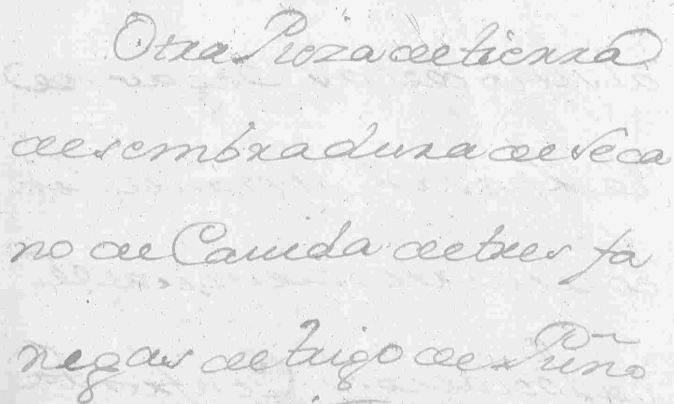 Otra Pieza de tierra
de sembradura de seca
no de Cauida de tres fa
negas de trigo de Puño